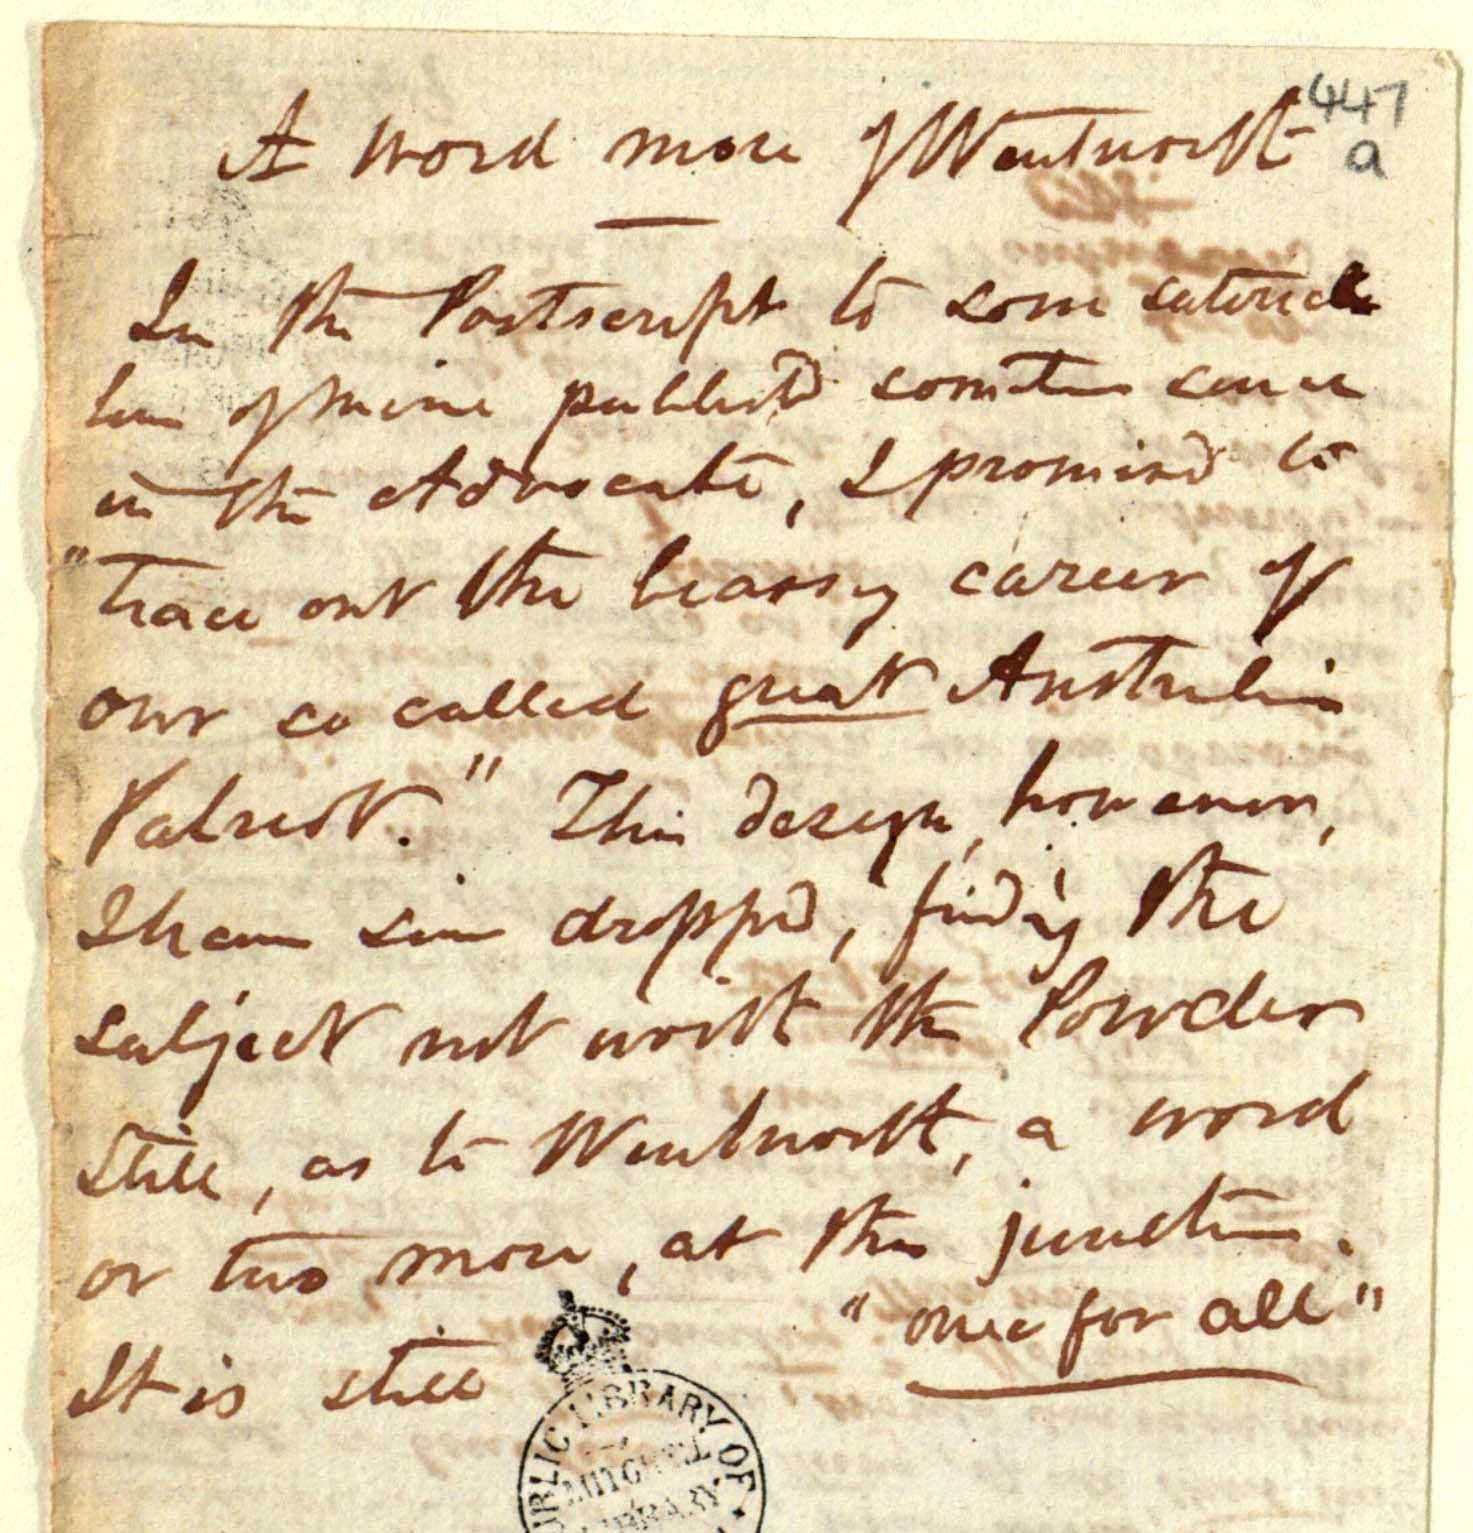 447
a
A word more of Wentworth
In the Postscript to some satirical
lines of mine publishd sometime since
in the Advocate, I promised to
"trace out the brassy career of
our so called great Australian
Patriot." This design, however,
I have since droppd, finding the
subject not worth the Powder
Still, as to Wentworth, a word
or two more, at this junction.
"once for all"
It is still
PUBLIC LIBRARY OF
MITCHELL
LIBRARY